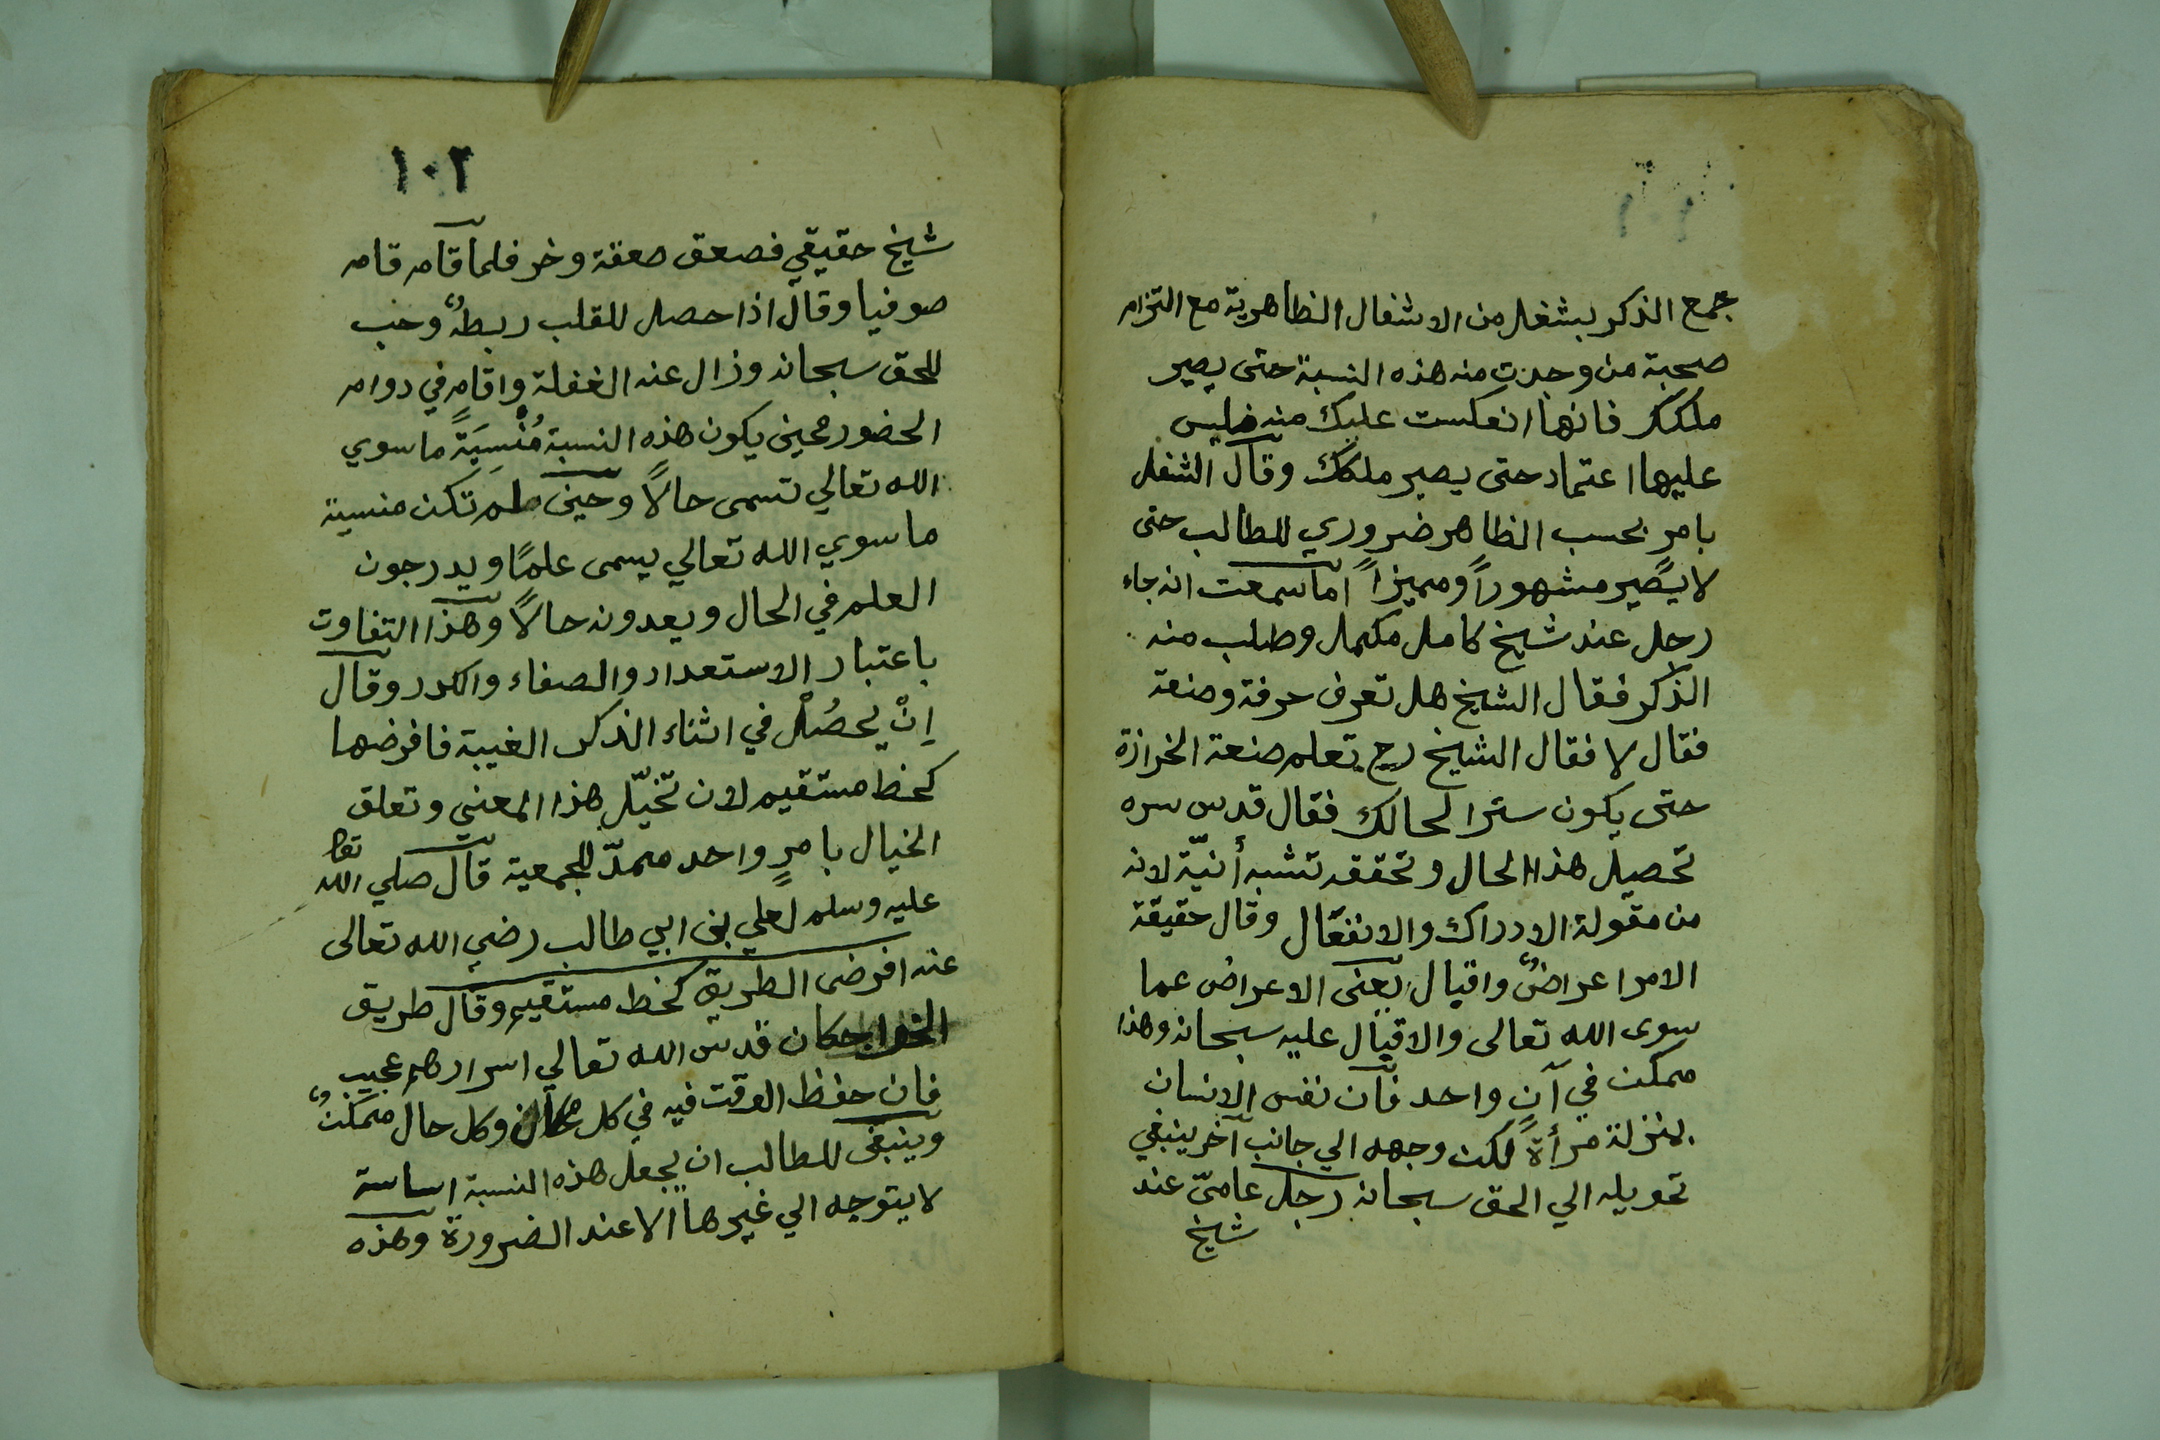 جمع الذكر بشغل من الاشغال الظاهرية مع التزام
صحبة من وجدت منه هذه النسبة حتى يصير
ملكك فانها انعكست عليك منه فليس
عليها اعتماد حتى يصير ملكك وقال الشغل
بامر بحسب الظاهر ضروري للطالب حتى
لا يصير مشهوراً ومميزاً اما سمعت انه جاء
رجل عند شيخ كامل مكمل وطلب منه
الذكر فقال الشيخ هل تعرف حرفة وصنعة
فقال لا فقال الشيخ رح تعلم صنعة الخرازة
حتى يكون سترا لحالك فقال قدس سره
تحصيل هذا الحال وتحققه تشبه أنيّة لانه
من مقولة الادراك والانفعال وقال حقيقة
الامر اعراضٌ واقبال يعنى الاعراض عما
سوى الله تعالى والاقبال عليه سبحانه وهذا
ممكن في آنٍ واحد فان نفس الانسان
بمنزلة مرأة لكن وجهه الي جانب آخر ينبغي
تحويله الي الحق سبحانه رجل عاميّ عند
شيخ
١٠٢
شيخ حقيقي فصعق صعقة وخر فلما قام قام
صوفيا وقال اذا حصل للقلب ربطٌ وحب
للحق سبحانه وزال عنه الغفلة واقام في دوام
الحضور فحين يكون هذه النسبة مُنْسِيَةً ما سوي
الله تعالي تسمى حالاً وحين لم تكن منسية
ما سوي الله تعالي يسمى علمًا ويدرجون
العلم في الحال ويعدونه حالاً وهذا التفاوت
باعتبار الاستعداد والصفاء والكدر وقال
اِنْ يحصُلْ في اثناء الذكر الغيبة فافرضها
كخط مستقيم لان تخيّل هذا المعنى وتعلق
الخيال بامرٍ واحد ممدّ للجمعية قال صلي الله تعا
عليه وسلم لعلي بن ابي طالب رضي الله تعالى
عنه افرض الطريق كخط مستقيم وقال طريق
الخواجكان قدس الله تعالي اسرارهم عجيب
فان حفظ الوقت فيه في كل مكان وكل حال ممكنٌ
وينبغى للطالب ان يجعل هذه النسبة اساسة
لا يتوجه الي غيرها الا عند الضرورة وهذه